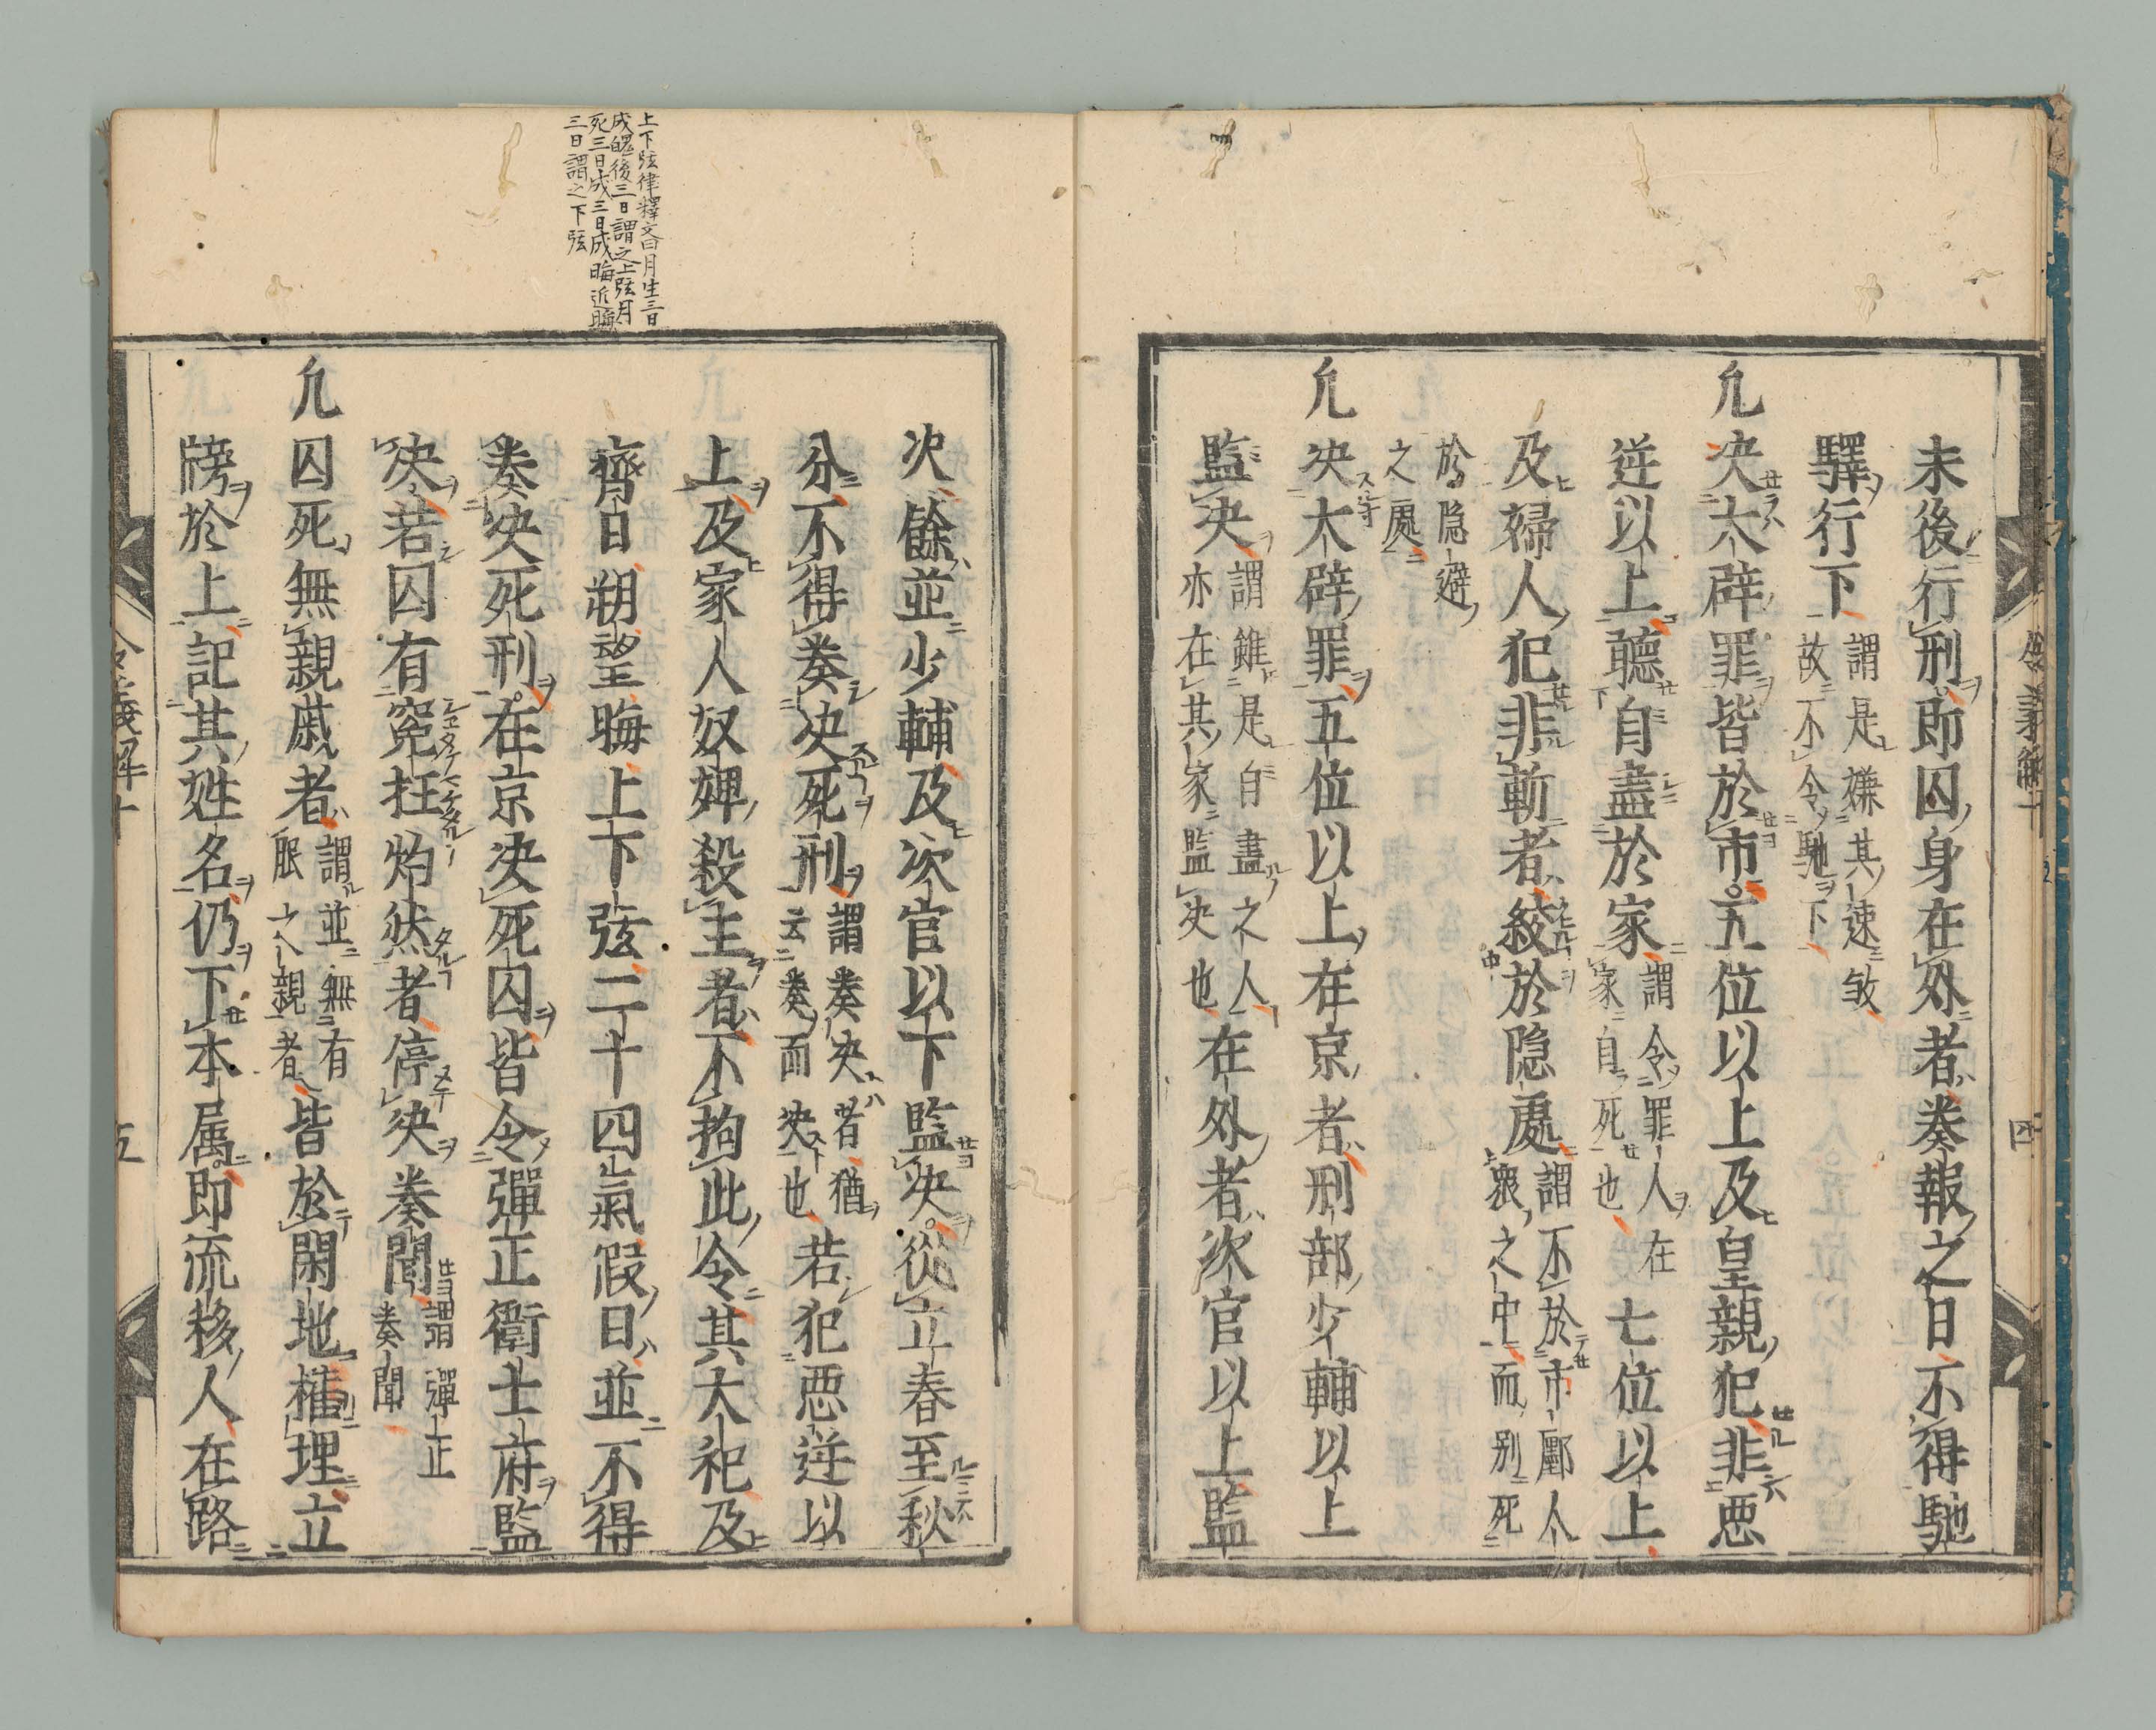 未後行刑即囚身在外者奏報之日不得馳
驛行下
謂是嫌其速
故不令馳下
凢决大辟罪皆於市五位以上及皇親犯非悪
逆以上聴自盡於家
謂令罪人在
家自死也
七位以上
及婦人犯非斬者絞於隠處
謂不於市㕓人
衆之中而別死
於隠避
之處
凢决大辟罪五位以上在京者刑部少輔以上
監决
謂雖是自盡之人
亦在其家監决也
在外者次官以上監
次餘並少輔及次官以下監决從立春至秋
分不得奏决死刑
謂奏决者猶
云奏而决也
若犯悪逆以
上及家人奴婢殺主者不拘此令其大祀及
齊日朔望晦上下弦二十四氣假日並不得
奏决死刑在京决死囚皆令彈正衛士府監
决若囚有冤枉灼然者停决奏聞
謂彈正
奏聞
凢囚死無親戚者
謂並無有
服之親者
皆於閑地権埋立
牓於上記其姓名仍下本属即流移人在路
上下弦律釋文曰月生三日
成魄後三日謂之上弦月
死三日成三日成晦近晦
三日謂之下弦
令義解十
四
令義解十
五